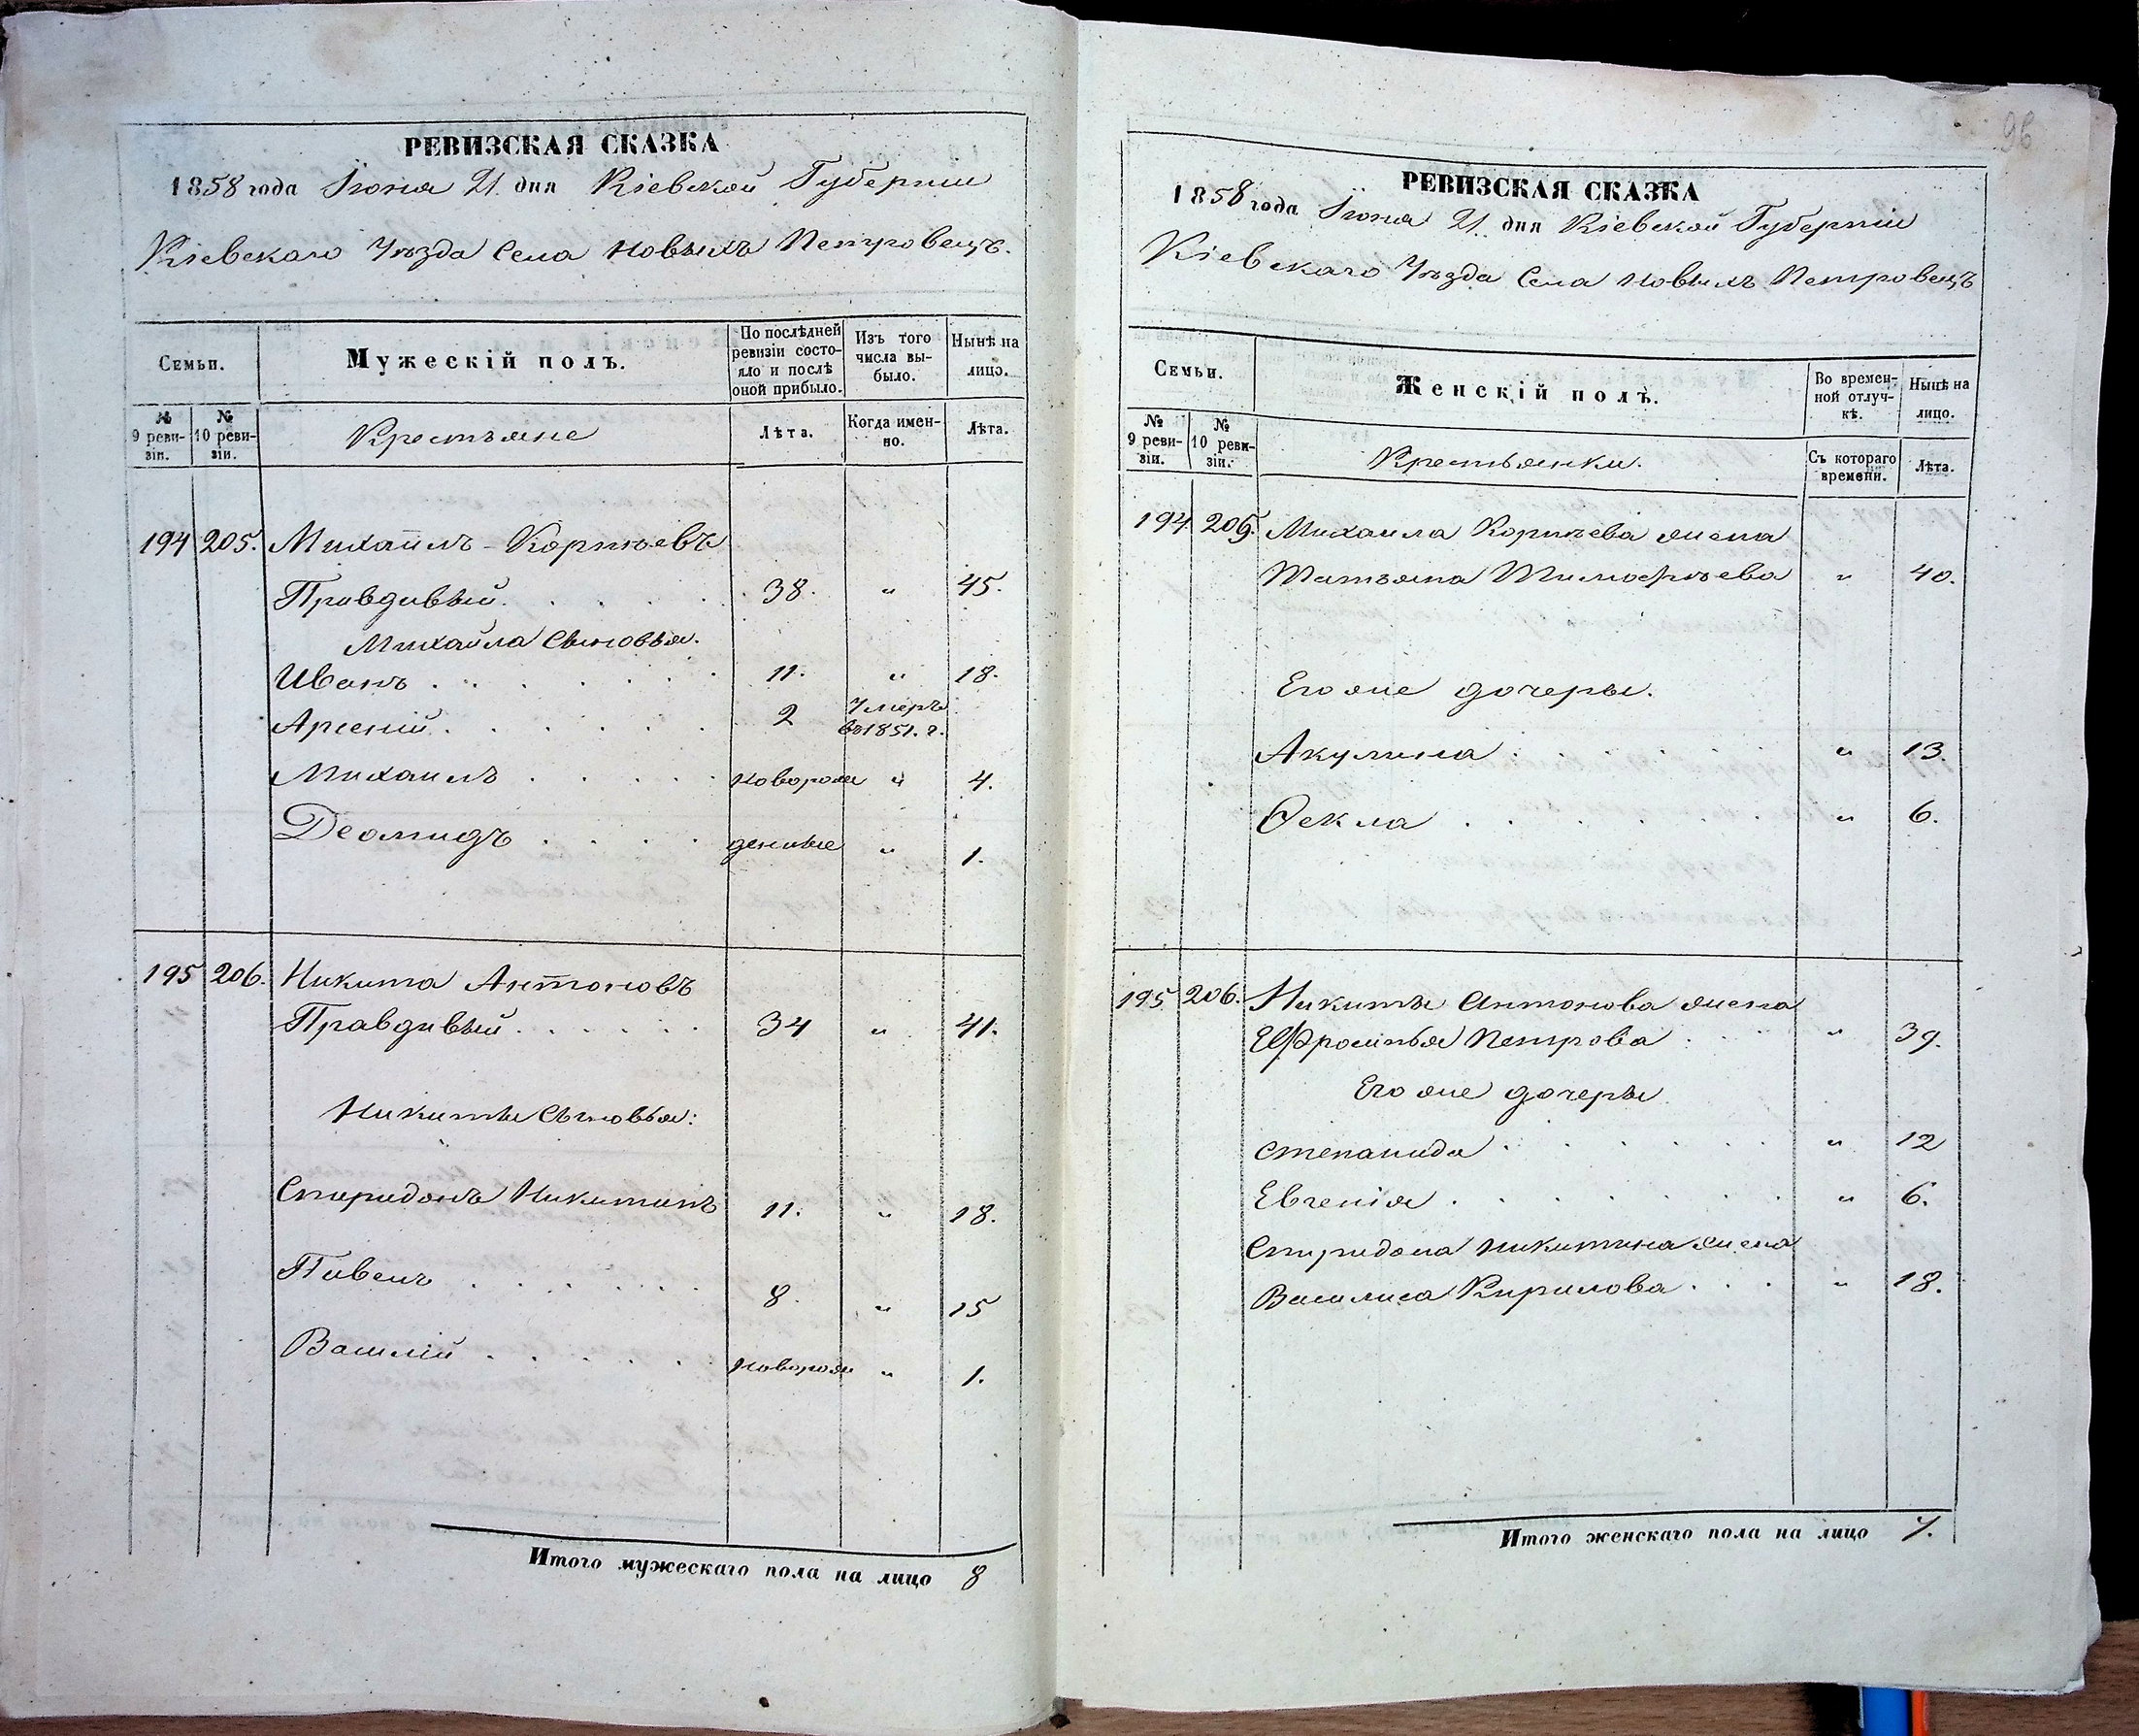 РЕВИЗСКАЯ СКАЗКА
1858 года Іюня 21. дня Кіевской Губерніи
Кіевскаго Уѣзда Села Новыхъ Петровецъ.
Семьи.
Мужескій полъ.
По послѣдней ревизіи состояло и послѣ оной прибыло.
Изъ того числа выбыло.
Нынѣ на лицо.
№ 9 ревизіи.
№ 10 ревизіи.
Крестьяне
Лѣта.
Когда именно.
Лѣта.
194 205. Михаилъ Корнѣевъ
Правдивый 38. " 45.
Михайла Сыновья.
Иванъ 11. " 18.
Арсеній 2 Умеръ въ 1851. г.
Михаилъ новорож " 4.
Деомидъ денные " 1.
195 206. Никита Антоновъ
Правдивый 34 " 41.
Никиты Сыновья:
Спиридонъ Никитинъ 11. " 18.
Пивенъ 8. " 15
Василій новорож " 1.
Итого мужескаго пола на лицо 8
96
РЕВИЗСКАЯ СКАЗКА
1858 года Іюня 21. дня Кіевской Губерніи
Кіевскаго Уѣзда Села Новыхъ Петровецъ
Семьи.
Женскій полъ.
Во временной отлучкѣ.
Нынѣ на лицо.
№ 9 ревизіи.
№ 10 ревизіи.
Крестьянки.
Съ котораго времени.
Лѣта.
194 205. Михаила Корнѣева жена
Татьяна Тимофѣева " 40.
Его же дочеры.
Акулина " 13.
Ѳекла " 6.
195 206. Никиты Антонова жена
Ефросинья Петрова " 39.
Его же дочеры
Степанида " 12
Евгенія " 6.
Спиридона Никитина жена
Василиса Кирилова " 18.
Итого женскаго пола на лицо 7.